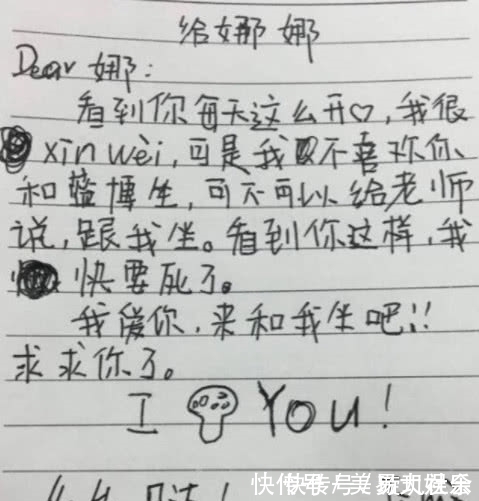 给娜娜
Dear 娜:
看到你每天这么开♡,我很
xin wei,可是我又不喜欢你
和蓝博生,可不可以给老师
说,跟我坐。看到你这样,我
快要死了。
我爱你,来和我坐吧!!
求求你了。
I You!